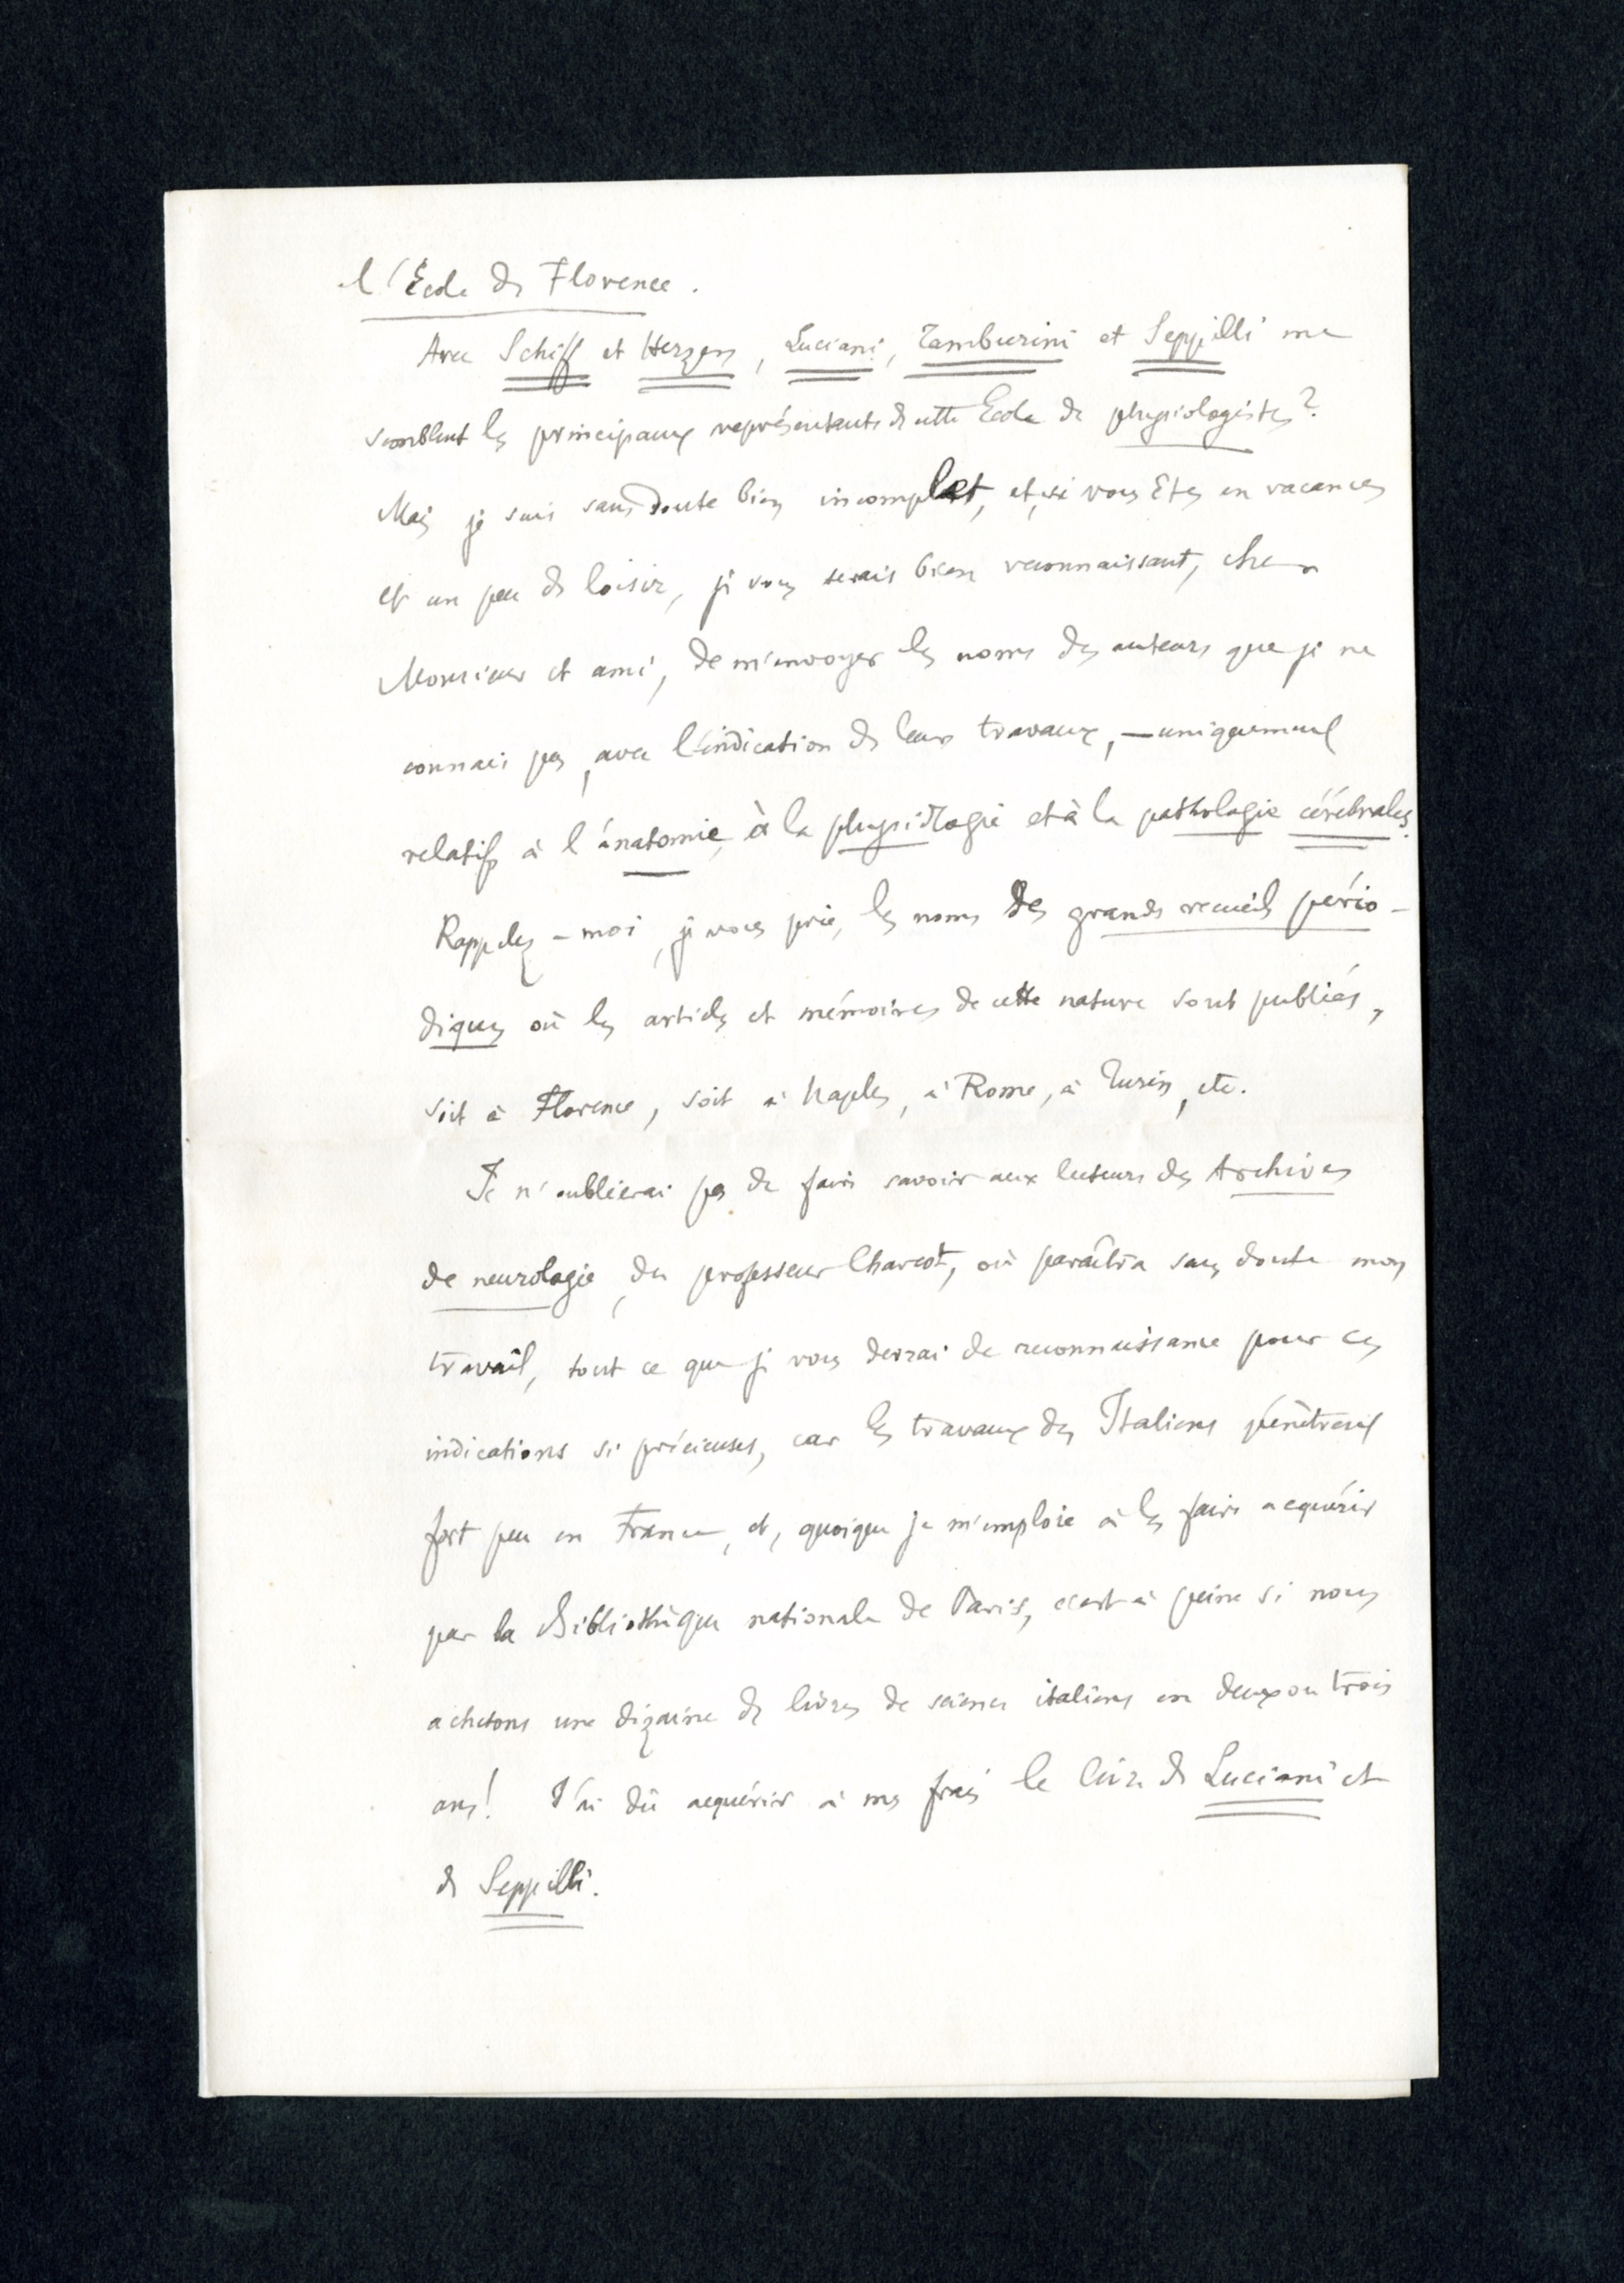 l'École de Florence.
Avec Schiff et Herzen, Luciani, Tamburini et Seppilli me
semblent les principaux représentants de cette École de physiologistes?
Mais je suis sans doute bien incomplet, et, si vous êtes en vacances
et un peu de loisir, je vous serais bien reconnaissant, cher
Monsieur et ami, de m'envoyer les noms des auteurs que je ne
connais pas, avec l'indication de leurs travaux, — uniquement
relatifs à l'anatomie, à la physiologie et à la pathologie cérébrales.
Rappelez-moi, je vous prie, les noms des grands recueils pério-
diques où les articles et mémoires de cette nature sont publiés,
soit à Florence, soit à Naples, à Rome, à Turin, etc.
Je n'oublierai pas de faire savoir aux lecteurs des Archives
de neurologie, du professeur Charcot, où paraîtra sans doute mon
travail, tout ce que je vous devrai de reconnaissance pour ces
indications si précieuses, car les travaux des Italiens pénètrent
fort peu en France, et, quoique je m'emploie à les faire acquérir
par la Bibliothèque nationale de Paris, c'est à peine si nous
achetons une dizaine de livres de science italiens en deux ou trois
ans! J'ai dû acquérir à mes frais le livre de Luciani et
de Seppilli.